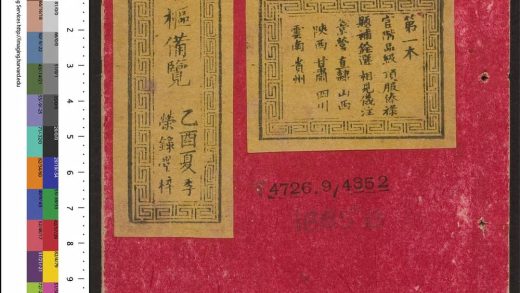 第一本
官階品級 頂服俸祿
題補銓選 相見儀注
京營 直隸 山西
陝西 甘肅 四川
雲南 貴州
樞備覽
乙酉夏季
榮錄堂梓
4726.9/4352
2
3
4
5
6
7
8
9